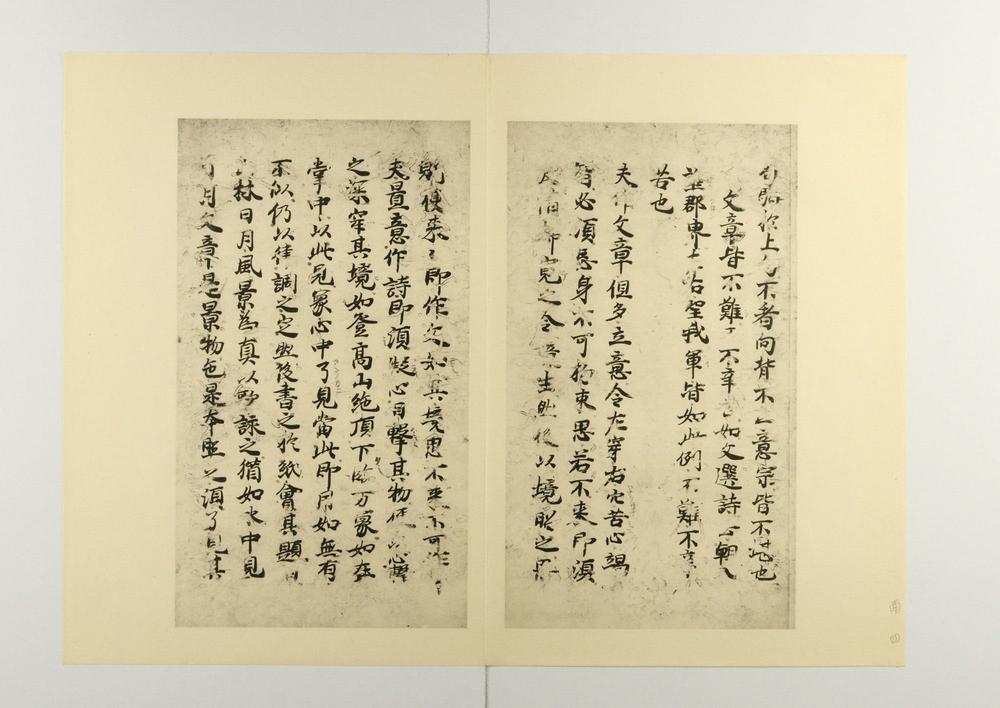 上句不看向背不立意宗皆不堪也
文章皆不難又不辛苦如文選詩云朝入
譙郡界左右望我軍皆如此例不難不辛
苦也
夫作文章但多立意令左穿右穴苦心竭
智必須忘身不可拘束思若不来即須
放情却寛之令境生然後以境照之思
則便来来即作文如其境思不来不可作
夫置意作詩即須凝心目擊其物便以心擊
之深穿其境如登高山絶頂下臨万象如在
掌中以此見象心中了見當此即用如無有
不似仍以律調之定然後書之於紙會其題目
山林日月風景為真以歌詠之猶如水中見
日月文章是景物色是本照之須了見其